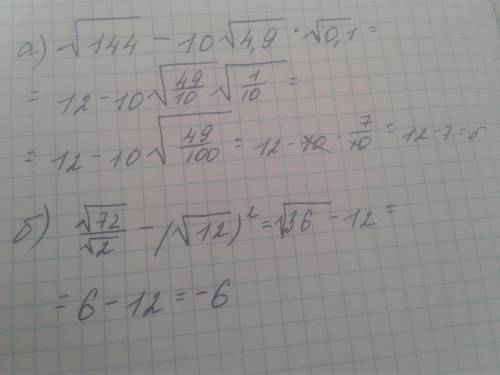 а) √144 − 10√4,9 · √0,1 =
= 12 − 10 √(49/10) √(1/10) =
= 12 − 10 √(49/100) = 12 − 10 · 7/10 = 12 − 7 = 5
б) √72/√2 − (√12)² = √36 − 12 =
= 6 − 12 = −6